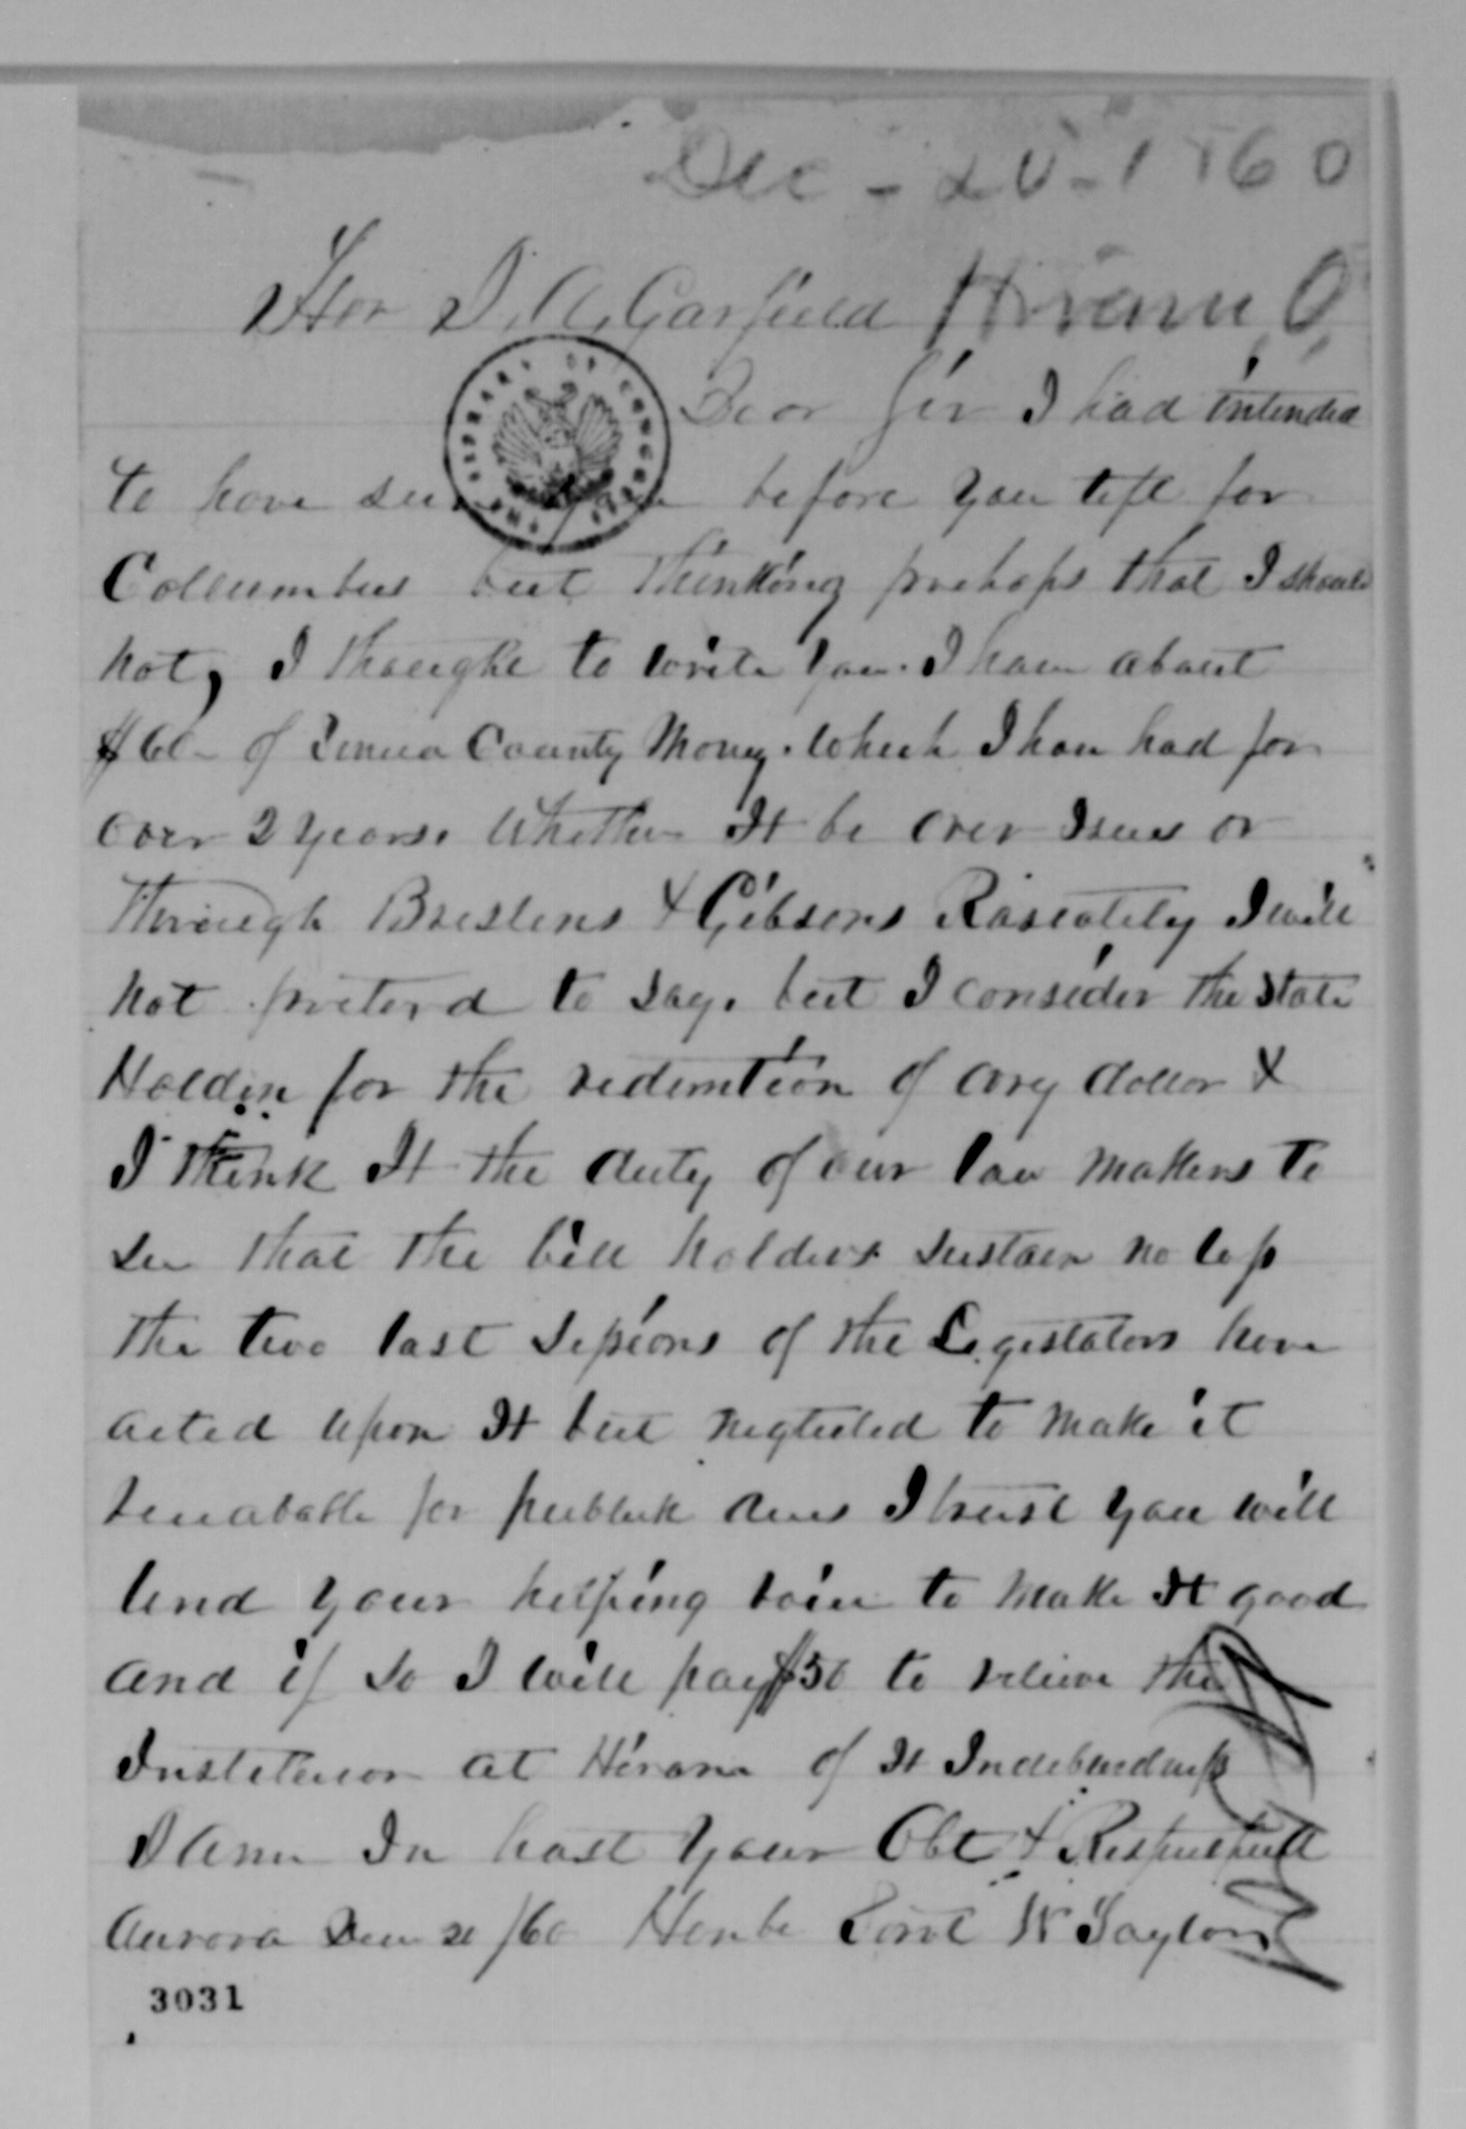 Dec - 20 - 1860
Hon J. A. Garfield Hiram, O,
Dear Sir I had intended
to have seen you before you left for
Collumbus but thinking prehaps that I should
not, I thought to write you. I have about
$60- of Seneca County Money. which I have had for
over 2 years. Whether It be over Issues or
through Breslins & Gibsons Rascality I will
not pretend to say. but I consider the State
Holden for the redemtion of evry dollar &
I think It the duty of our law makers to
see that the bill holders sustain no loss
the two last sessions of the Legislators have
acted upon It but neglected to make it
for publick dues I trust you will
lend your helping to make It good
and if so I will pay $50 to relieve the
Institution at Hiram of It Indebtedness
I am In hast your Obt & Respectfull
Aurora Dec 20 /60 W Taylor
3031
THE LIBRARY OF CONGRESS